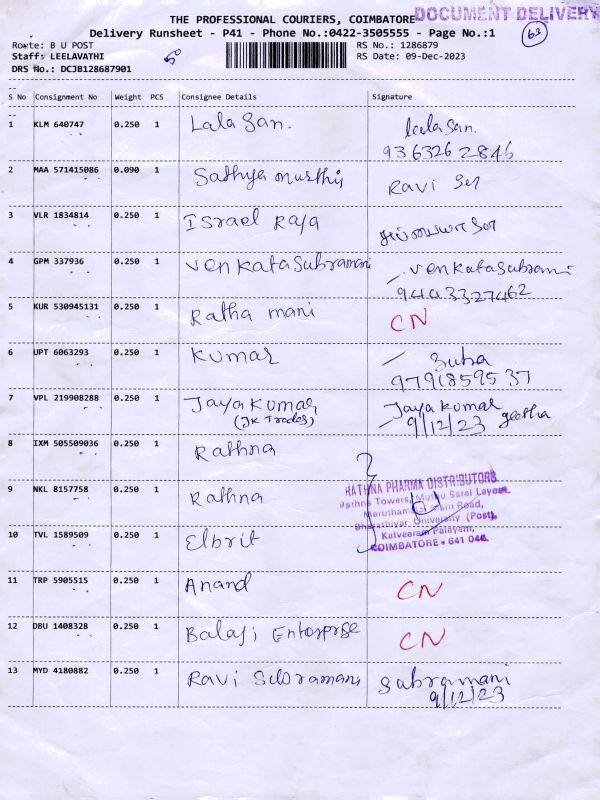 THE PROFESSIONAL COURIERS, COIMBATORE
DOCUMENT DELIVERY
Delivery Runsheet - P41 - Phone No.:0422-3505555 - Page No.:1
63
Route: B U POST
RS No.: 1286879
Staff: LEELAVATHI
RS Date: 09-Dec-2023
DRS No.: DCJB128687901
50
S No Consignment No Weight PCS Consignee Details Signature
1 KLM 640747 0.250 1 Lala San. Lala San.
9363262846
2 MAA 571415086 0.090 1 Sathya murthy Ravi
3 VLR 1834814 0.250 1 ISrael Raja
4 GPM 337936 0.250 1 Venkatasubramani Venkatasubrami
9443327462
5 KUR 530945131 0.250 1 Ratha mani CN
6 UPT 6063293 0.250 1 Kumar Suba
9791859537
7 VPL 219908288 0.250 1 Jayakumar Jayakumar
(JK Trades) 9/12/23 geetha
8 IXM 505509036 0.250 1 Rathna
9 NKL 8157758 0.250 1 Rathna
RATHNA PHARMA DISTRIBUTORS
Rathna Towers, Muthu Sarai Layout,
Maruthamalai Main Road,
Bharathiyar University (Post),
Kalveeram Palayam,
COIMBATORE - 641 046.
10 TVL 1589509 0.250 1 Elbrit
11 TRP 5905515 0.250 1 Anand CN
12 DBU 1408328 0.250 1 Balaji Enterprse CN
13 MYD 4180882 0.250 1 Ravi Subramani Subramani
9/12/23